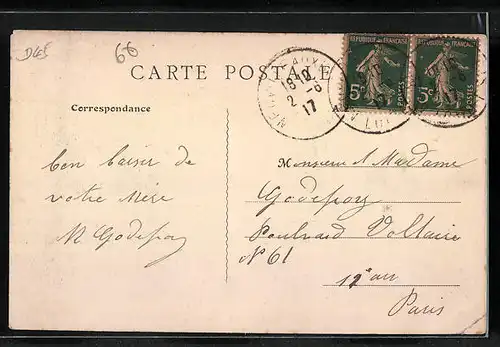 D45
66
CARTE POSTALE
REPUBLIQUE FRANÇAISE
5c
POSTES
REPUBLIQUE FRANÇAISE
5c
POSTES
18 10
2 -6
17
Correspondance
bon baiser de
votre Mère
M Godefroy
Monsieur & Madame
Godefroy
Boulevard Voltaire
No 61
arr
Paris